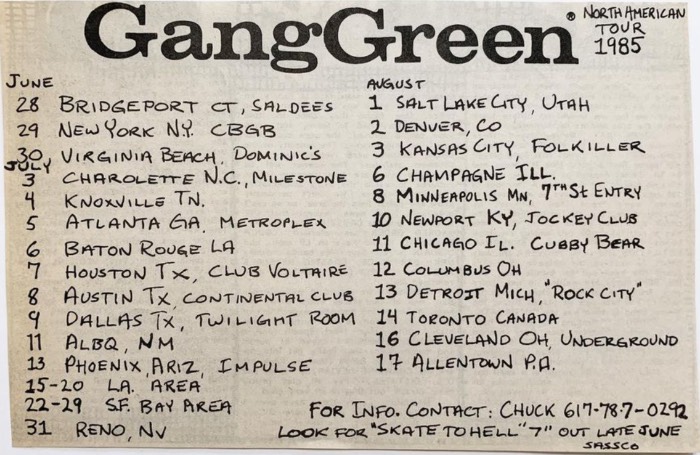 GangGreen ® NORTH AMERICAN
TOUR
1985
JUNE
28 BRIDGEPORT CT, SALDEES
29 NEW YORK NY. CBGB
30, VIRGINIA BEACH, DOMINIC'S
JULY
3 CHAROLETTE N.C., MILESTONE
4 KNOXVILLE TN.
5 ATLANTA GA, METROPLEX
6 BATON ROUGE LA
7 HOUSTON TX, CLUB VOLTAIRE
8 AUSTIN TX, CONTINENTAL CLUB
9 DALLAS TX, TWILIGHT ROOM
11 ALBQ, NM
13 PHOENIX, ARIZ, IMPULSE
15-20 LA. AREA
22-29 S.F. BAY AREA
31 RENO, NV
AUGUST
1 SALT LAKE CITY, UTAH
2 DENVER, CO
3 KANSAS CITY, FOLKILLER
6 CHAMPAGNE ILL.
8 MINNEAPOLIS MN, 7TH St ENTRY
10 NEWPORT KY, JOCKEY CLUB
11 CHICAGO IL. CUBBY BEAR
12 COLUMBUS OH
13 DETROIT MICH, "ROCK CITY"
14 TORONTO CANADA
16 CLEVELAND OH, UNDERGROUND
17 ALLENTOWN P.A.
FOR INFO. CONTACT: CHUCK 617-787-0292
LOOK FOR "SKATE TO HELL" 7" OUT LATE JUNE
SASSCO